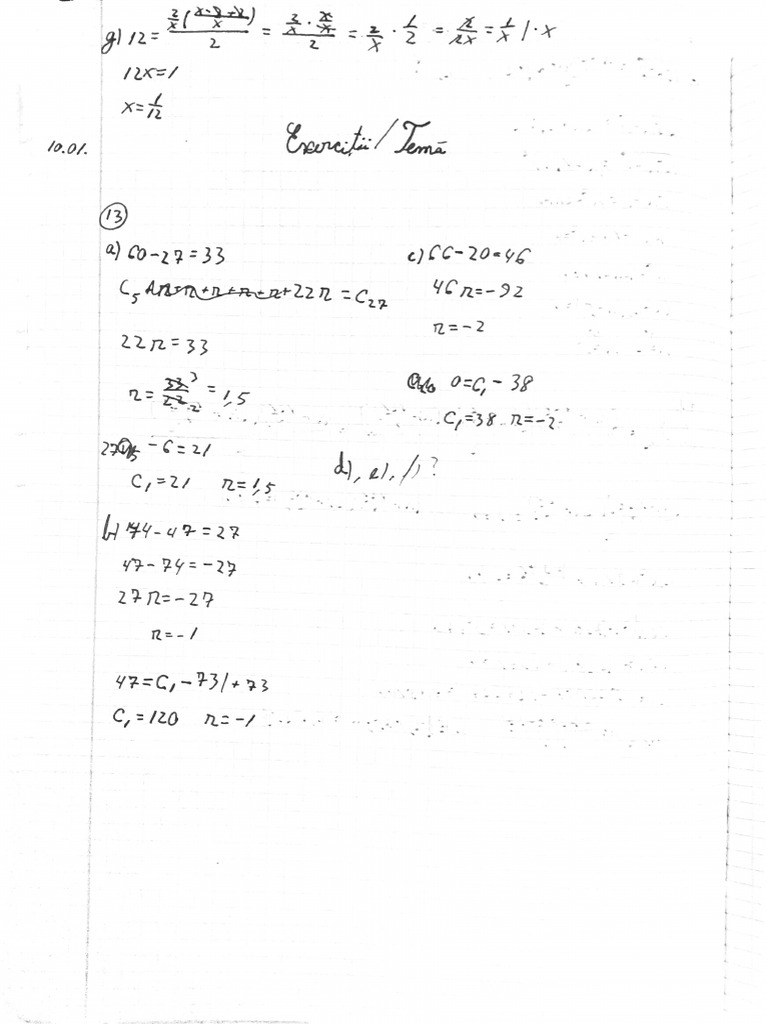 g) 12 = (2/x (x-2+2 / x)) / 2 = (2/x · x/x) / 2 = 2/x · 1/2 = 2/2x = 1/x | · x
12x = 1
x = 1/12
10.01.
Exerciții / Temă
13
a) 60 - 27 = 33
= C27
22r = 33
r = 33/22 = 1,5
- 6 = 21
C1 = 21 r = 1,5
b) 74 - 47 = 27
47 - 74 = -27
27r = -27
r = -1
47 = C1 - 73 | + 73
C1 = 120 r = -1
c) 66 - 20 = 46
46r = -92
r = -2
0 = C1 - 38
C1 = 38 r = -2
d), e), f) ?